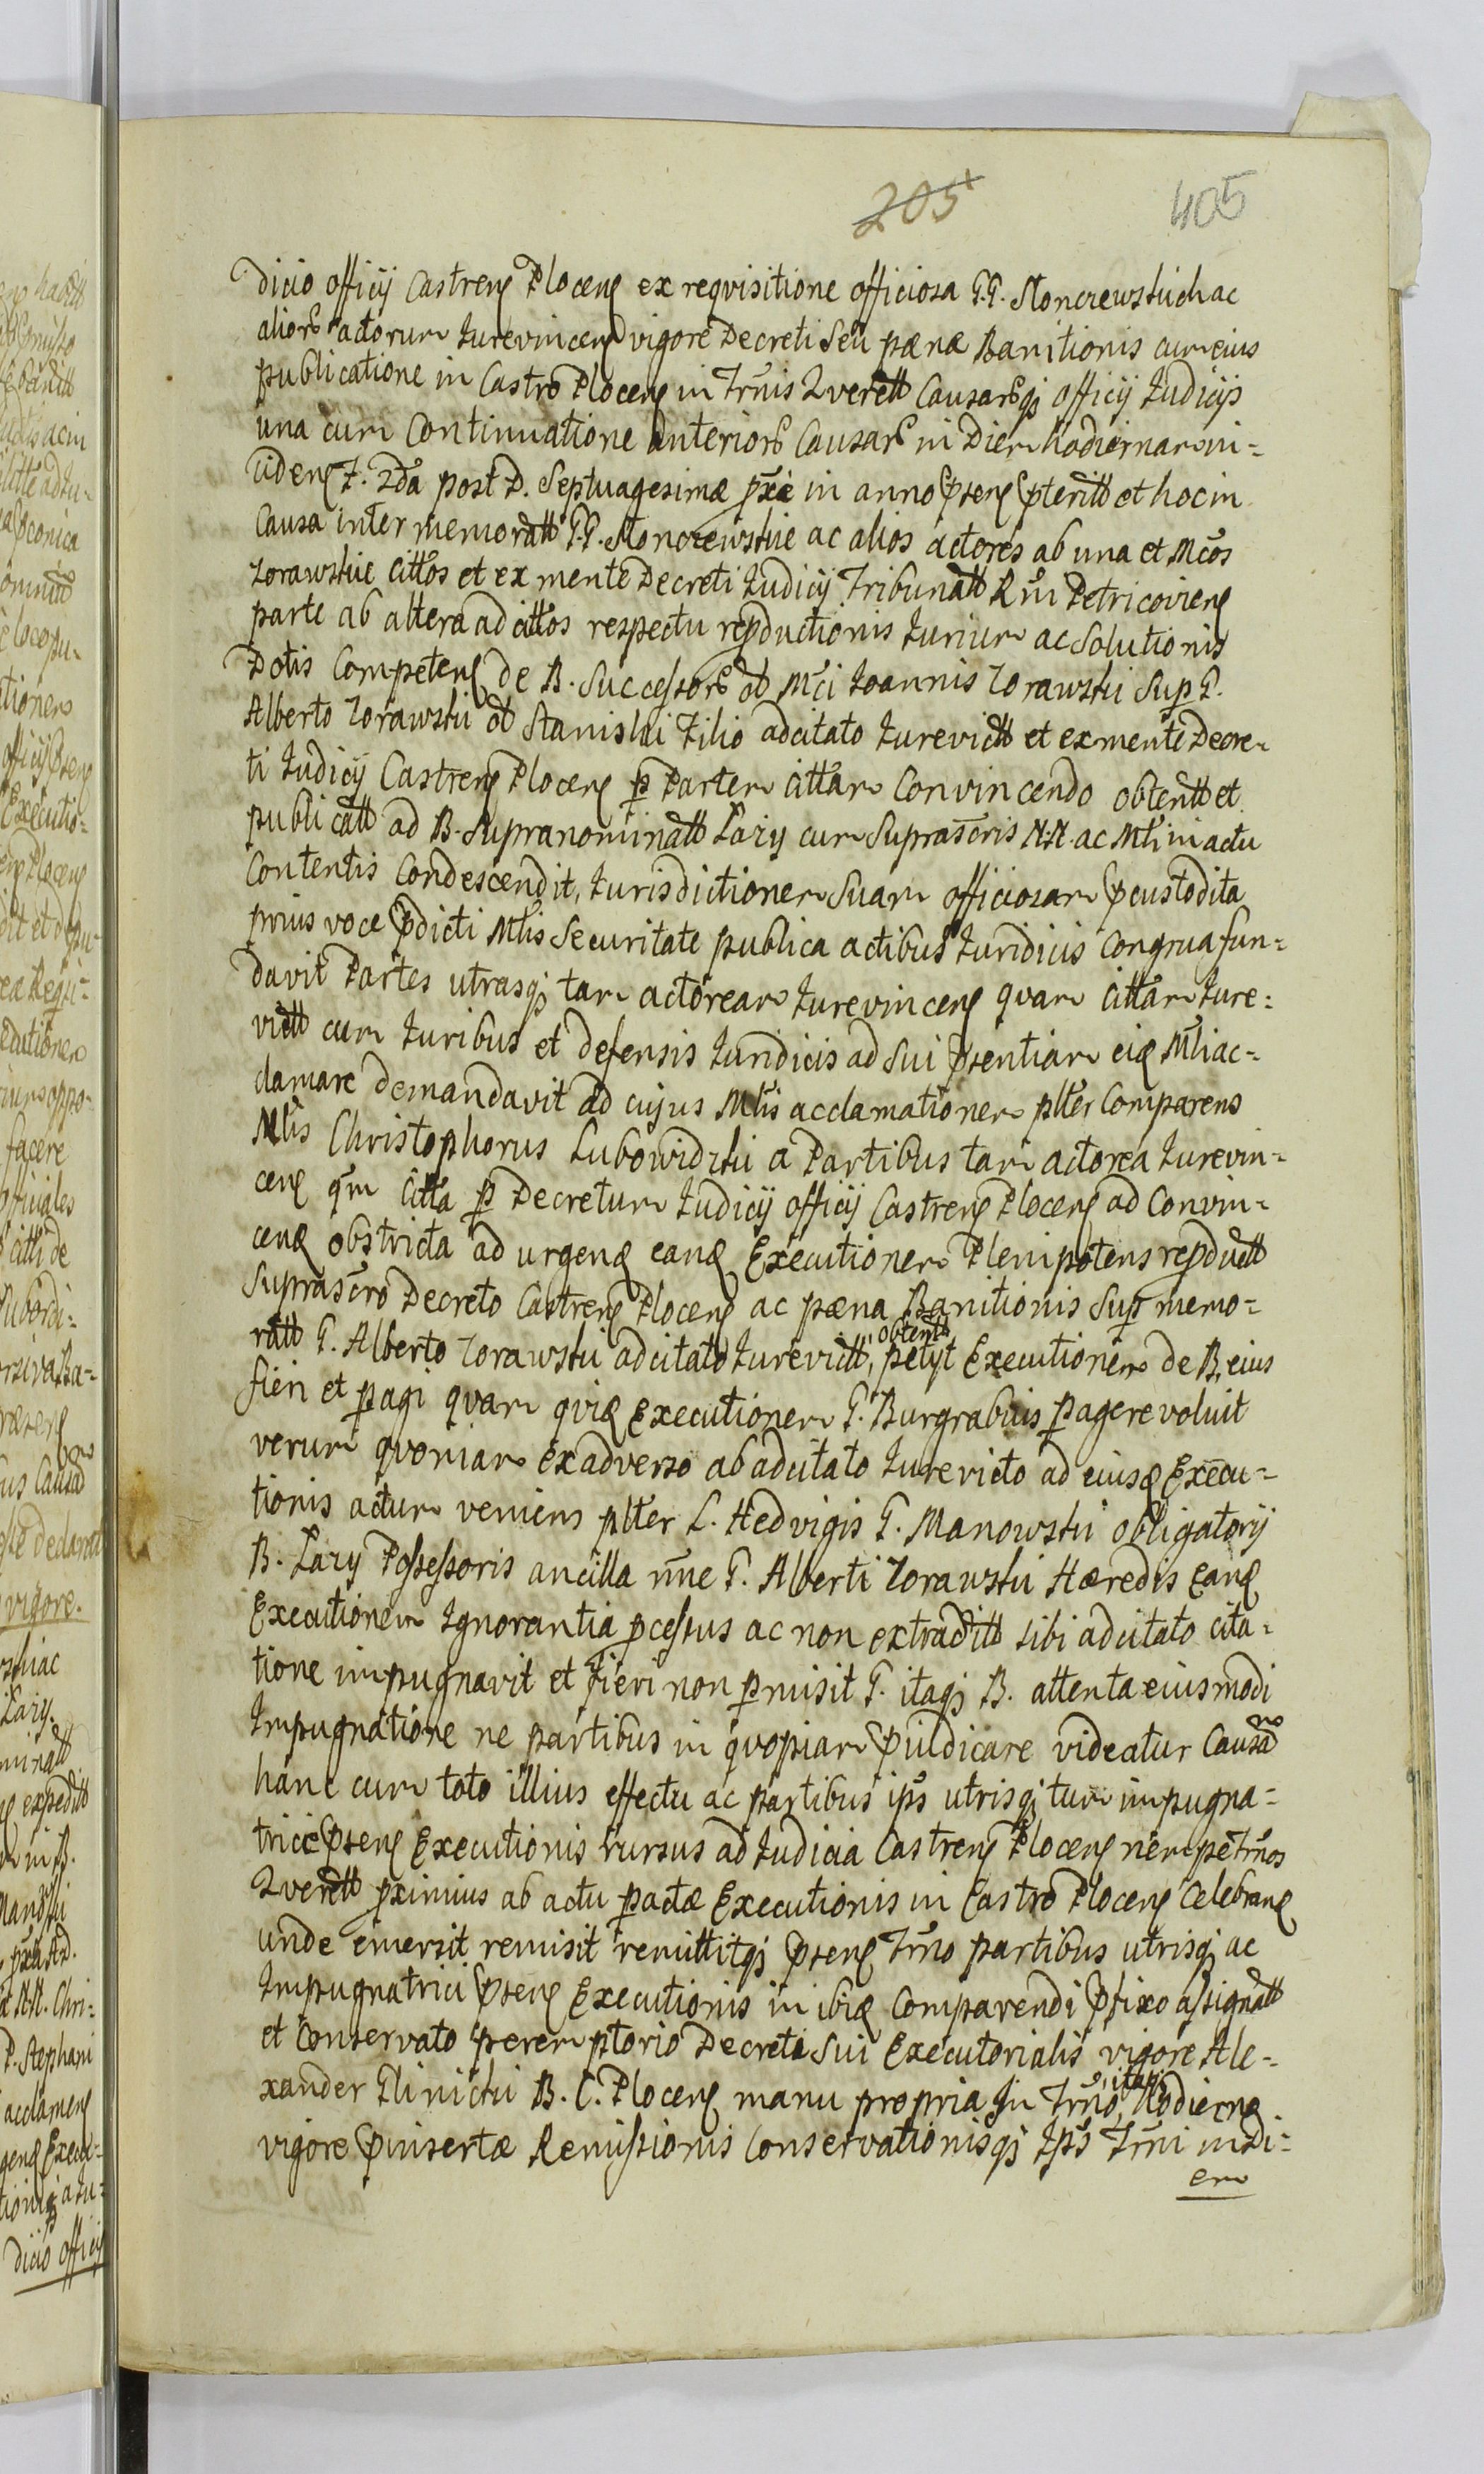 205
405
dicio officij Castreñ Ploceñ ex reqvisitione officiosa G.G. Moncrewskich ac
alior̃ actorum Jurevinceñ vigore Decreti Seu pænæ Banitionis cum eius
publicatione in Castro Ploceñ in Trñis Qverett Causar̃qȝ officij Judicijs
una cum Continuatione anterior̃ Causar̃ in Diem hodiernam in-
cideñ F. 2da post D. Septuagesimæ pxæ in anno pseñ pteritt et hoc in
Causa inter memoratt G.G. Moncrewskie ac alios actores ab una et Mcos
Zorawskie Cittos et ex mente Decreti Judicij Tribunatt Rñi Petricovieñ
parte ab altera ad cittos respectu repductionis Jurium ac Solutionis
Dotis Competeñ de B. Successor̃ ol Mci Joannis Zorawski Sup G.
Alberto Zorawski ol Stanislai Filio adcitato Jurevictt et ex mente Decre-
ti Judicij Castreñ Ploceñ p Partem Cittam Convincendo obtentt et
publicatt ad B. Supranominatt Lazy cum Suprascris N.N. ac Mtli in actu
Contentis Condescendit, Jurisdictionem Suam officiosam pcustodita
prius voce pdicti Mtlis Securitate publica actibus Juridicis Congrua fun-
davit Partes utrasqȝ tam actoream Jurevinceñ qvam Cittam Jure-
victt cum Juribus et defensis Juridicis ad Sui psentiam eid Mtli ac-
clamare demandavit ad cujus Mtlis acclamationem plter Comparens
Mtlis Christophorus Lubowidzki a Partibus tam actorea Jurevin-
ceñ qm Citta p Decretum Judicij officij Castreñ Ploceñ ad Convin-
cend obstricta ad urgend eand Executionem Plenipotens repductt
Suprascro Decreto Castreñ Ploceñ ac pæna Banitionis Sup memo-
ratt G. Alberto Zorawski adcitato Jurevictt, obtentt petyt Executionem de B. eius
fieri et pagi qvam qvid Executionem G. Burgrabius pagere voluit
verum qvoniam ex adverso ab adcitato Jurevicto ad eiusd Execu-
tionis actum veniens plter L. Hedvigis G. Manowski obligatorij
B. Lazy Possessoris ancilla nñe G. Alberti Zorawski Hæredis eand
Executionem Ignorantia pcessus ac non extraditt sibi adcitato cita-
tione impugnavit et fieri non pmisit G. itaqȝ B. attenta eiusmodi
Impugnatione ne partibus in qvopiam pjudicare videatur Causam
hanc cum toto illius effectu ac partibus ips utrisqȝ tum impugna-
trice pseñ Executionis rursus ad Judicia Castreñ Ploceñ nempe Trños
Qverett pximius ab actu pactæ Executionis in Castro Ploceñ Celebrand
unde emersit remisit remittitqȝ pseñ Trño partibus utrisqȝ ac
Impugnatrici pseñ Executionis in ibid Comparendi pfixo assignatt
et Conservato peremptorio Decreti Sui Executorialis vigore Ale-
xander Glinicki B. C. Ploceñ manu propria In Trño itaqȝ Hodierno
vigore pinsertæ Remissionis Conservationisqȝ Ips Trñi in di-
em